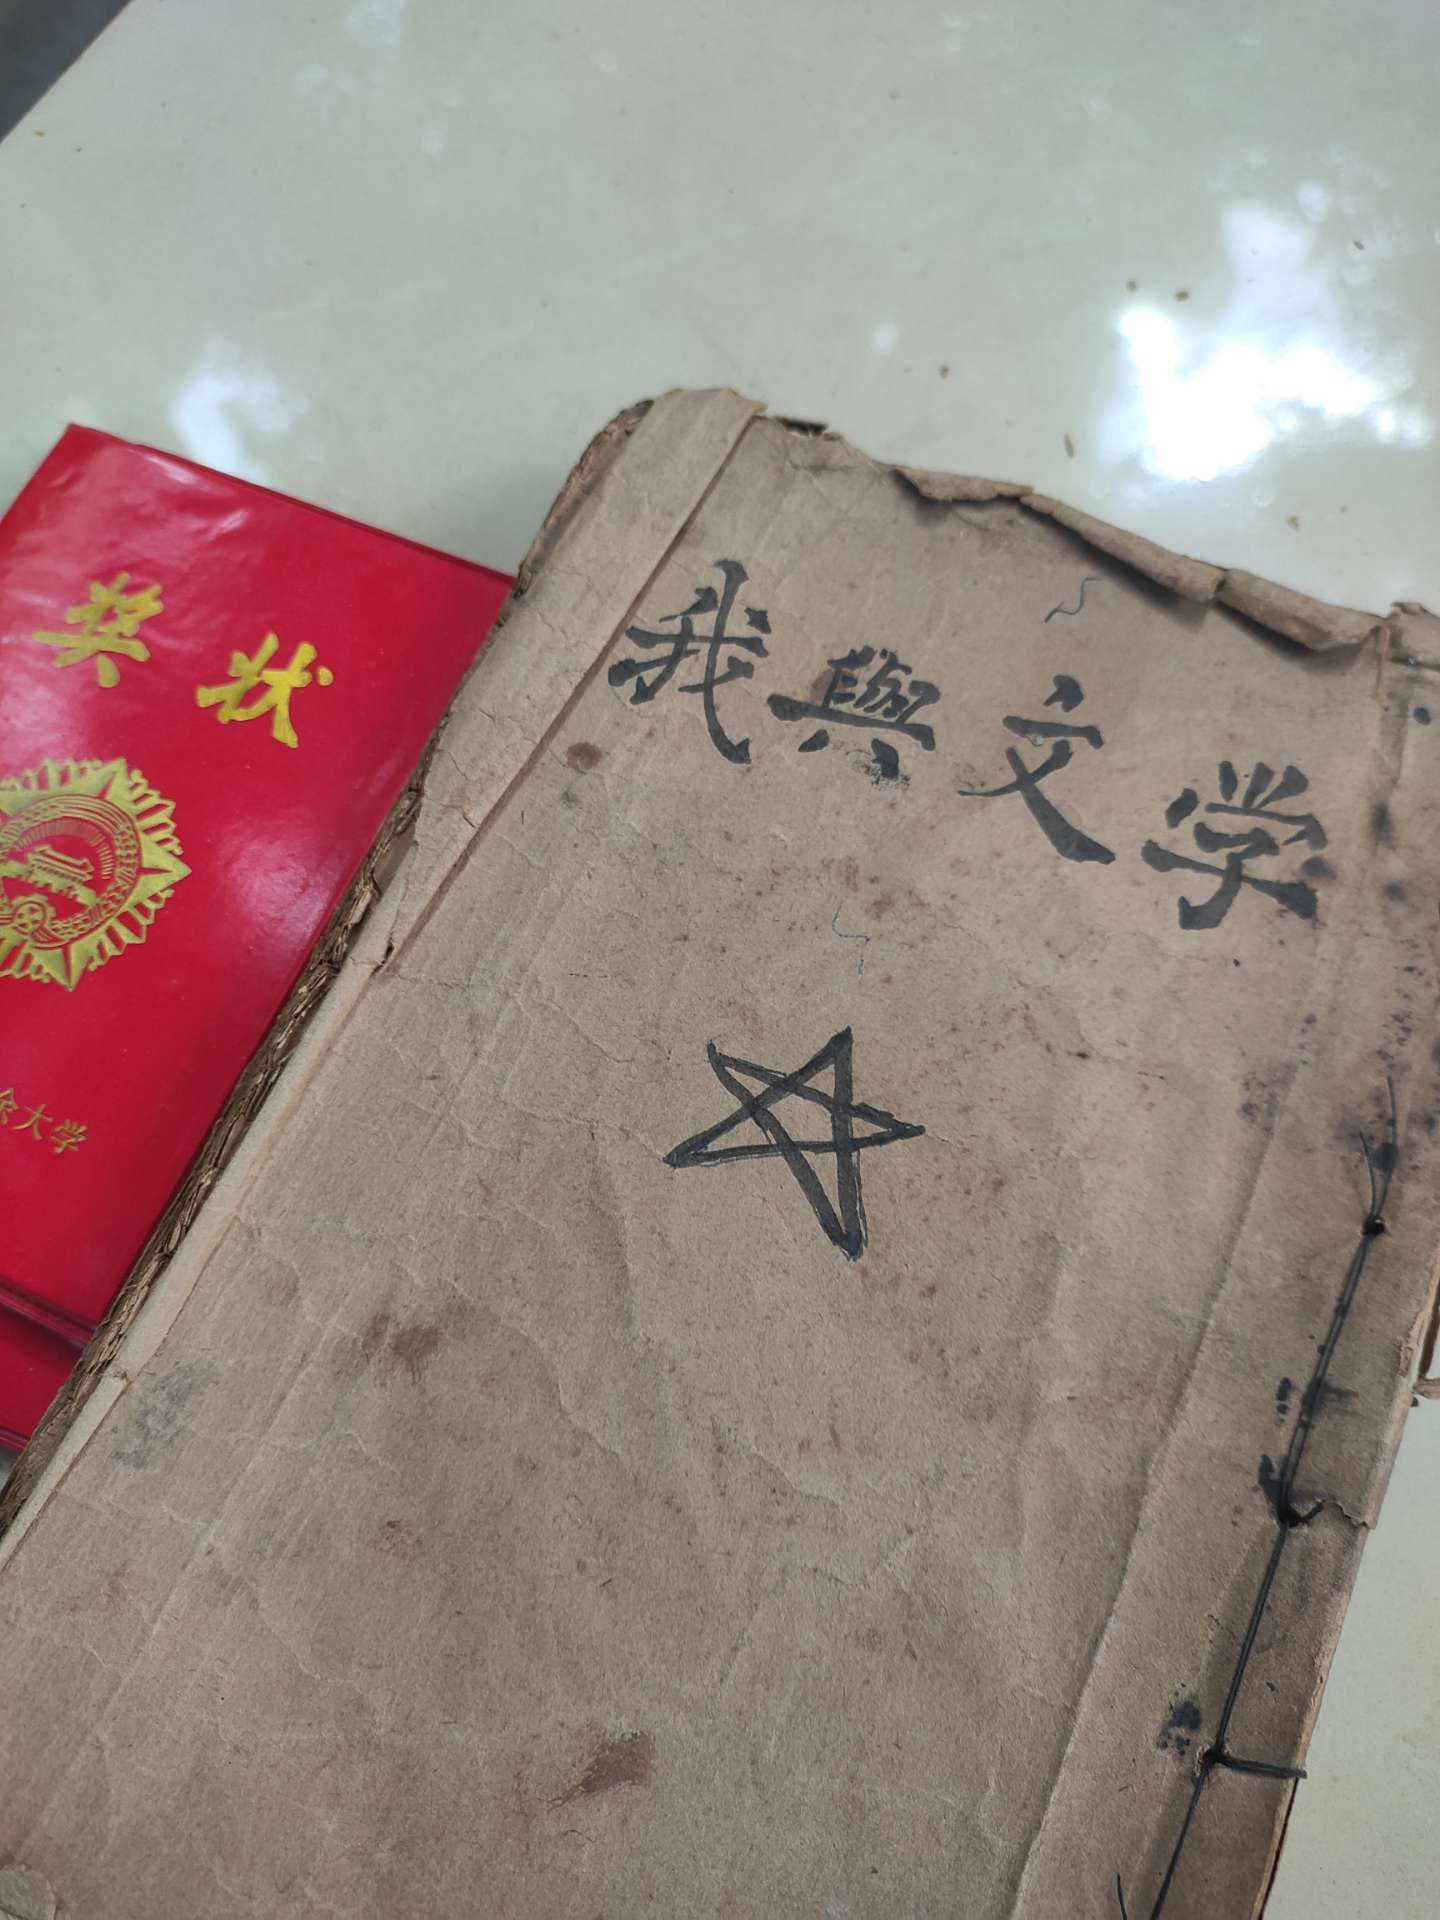 奖状
大学
我與文学